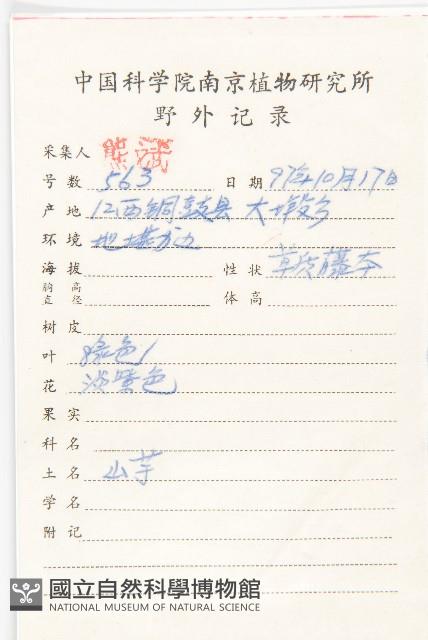 中国科学院南京植物研究所
野外记录
采集人 熊
号数 563 日期 97年10月17日
产地 江西铜鼓县 大塅乡
环境 地坎边
海拔 性状 草质藤本
胸高直径 体高
树皮
叶 绿色
花 淡紫色
果实
科名
土名 山芋
学名
附记
國立自然科學博物館
NATIONAL MUSEUM OF NATURAL SCIENCE